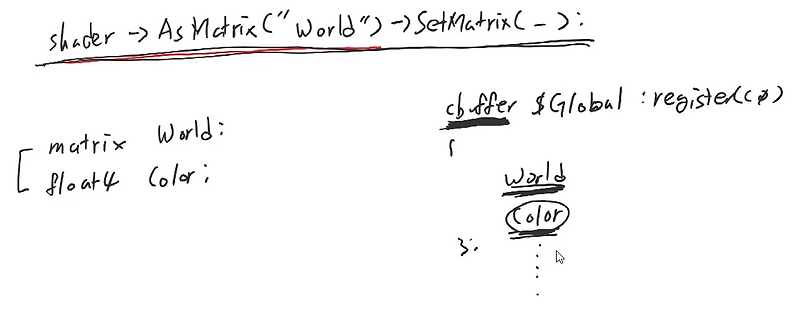 shader -> AsMatrix("World") -> SetMatrix( - );
matrix World;
float4 Color;
cbuffer $Global : register(c0)
{
World
Color
};